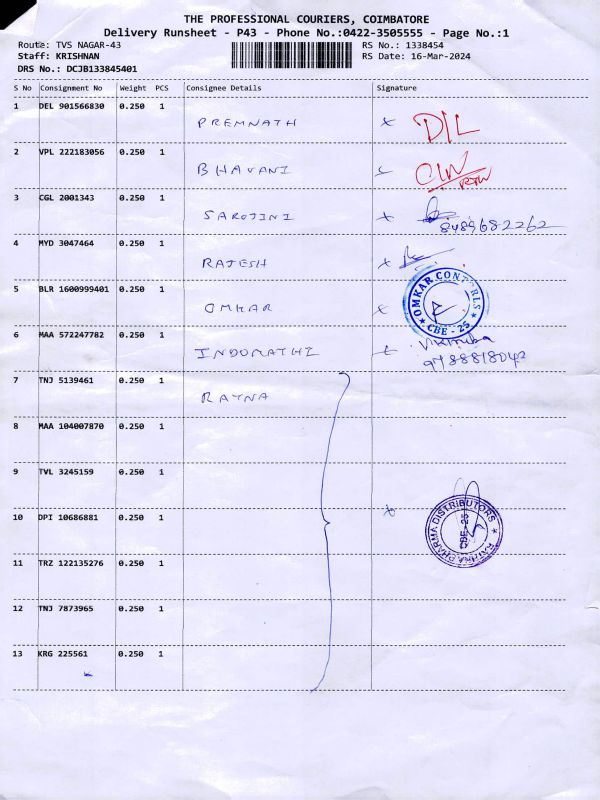 THE PROFESSIONAL COURIERS, COIMBATORE
Delivery Runsheet - P43 - Phone No.:0422-3505555 - Page No.:1
Route: TVS NAGAR-43 RS No.: 1338454
Staff: KRISHNAN RS Date: 16-Mar-2024
DRS No.: DCJB133845401
S No Consignment No Weight PCS Consignee Details Signature
1 DEL 901566830 0.250 1
PREMNATH x D/L
2 VPL 222183056 0.250 1
BHAVANI
3 CGL 2001343 0.250 1
SAROJINI x
8489682262
4 MYD 3047464 0.250 1
RAJESH x
5 BLR 1600999401 0.250 1
OMKAR x OMKAR CONTORLS
CBE - 25
6 MAA 572247782 0.250 1
INDUMATHI x
9788818042
7 TNJ 5139461 0.250 1
RATNA
8 MAA 104007870 0.250 1
9 TVL 3245159 0.250 1
x RATHNA PHARMA DISTRIBUTORS
CBE-25
10 DPI 10686881 0.250 1
11 TRZ 122135276 0.250 1
12 TNJ 7873965 0.250 1
13 KRG 225561 0.250 1